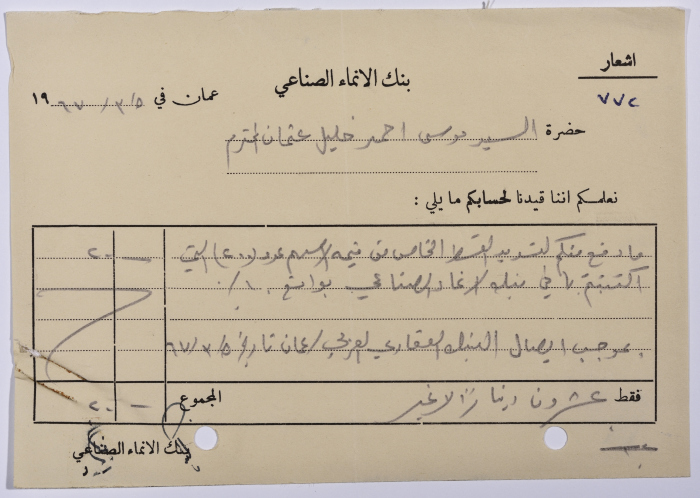 اشعار
٧٧٤
بنك الانماء الصناعي
عمان في ٥/٣/٦٧ ١٩
حضرة السيد موسى احمد خليل عثمان المحترم
نعلمكم اننا قيدنا لحسابكم ما يلي :
ما دفع منكم لتسديد القسط الخامس من قيمة الاسهم عدد (٢٠٠) التي ٢٠ —
اكتتبتم بها في بنك الانماء الصناعي بواقع ١٠٪
بموجب ايصال البنك العقاري العربي / عمان تاريخ ٥/٣/٦٧
فقط عشرون دينارًا لا غير المجموع ٢٠ —
بنك الانماء الصناعي